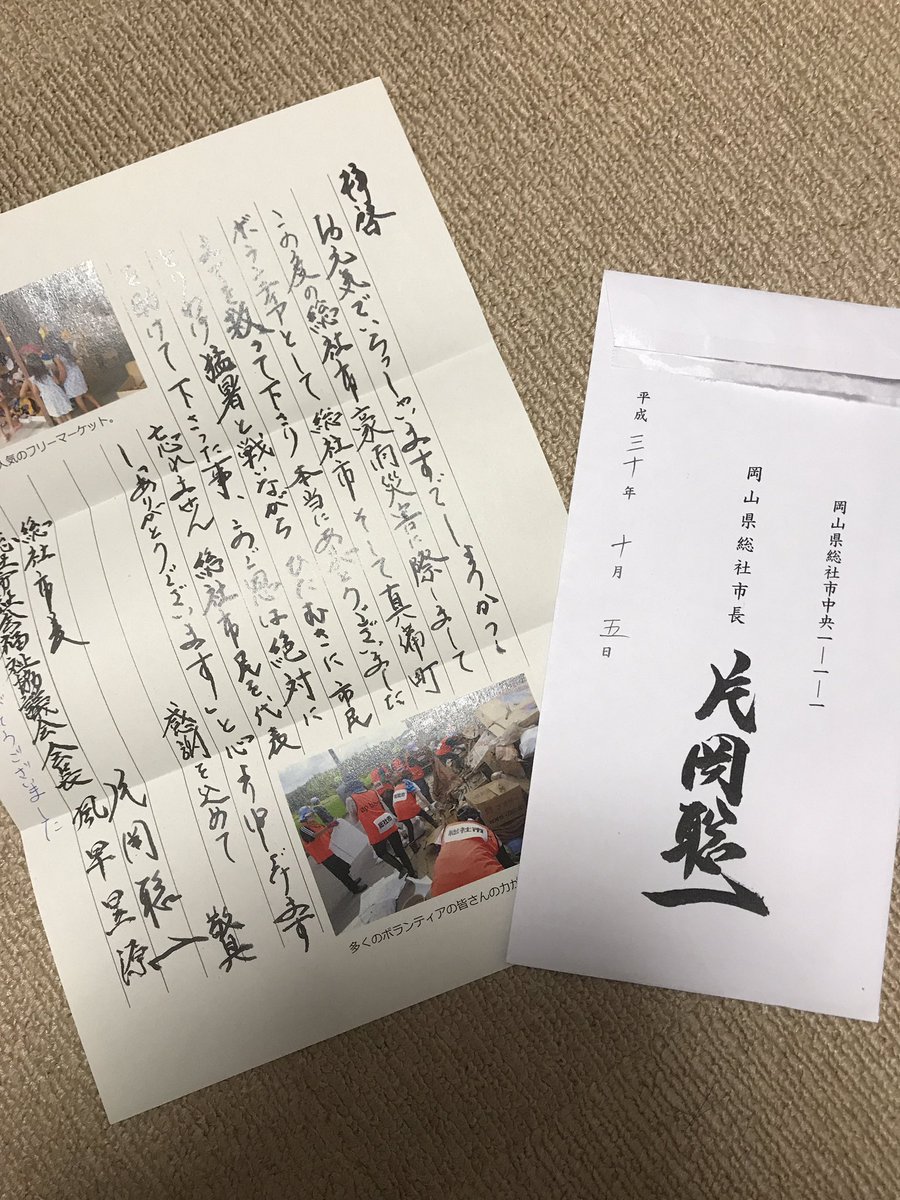 拝啓
お元気でいらっしゃいますでしょうか?
この度の総社市豪雨災害に際しまして
ボランティアとして 総社市 そして真備町
を救って下さり 本当にありがとうございました
猛暑と戦いながら ひたむきに 市民
を助けて下さった事、このご恩は絶対に
忘れません 総社市民を代表
し「ありがとうございます」と心より申し上げます
感謝を込めて
総社市長 片岡聡一
総社市社会福祉協議会会長 風早昱源
とうございました
人気のフリーマーケット。
総社市
多くのボランティアの皆さんの力が
岡山県総社市中央一―一―一
岡山県総社市長 片岡聡一
平成三十年 十月 五日